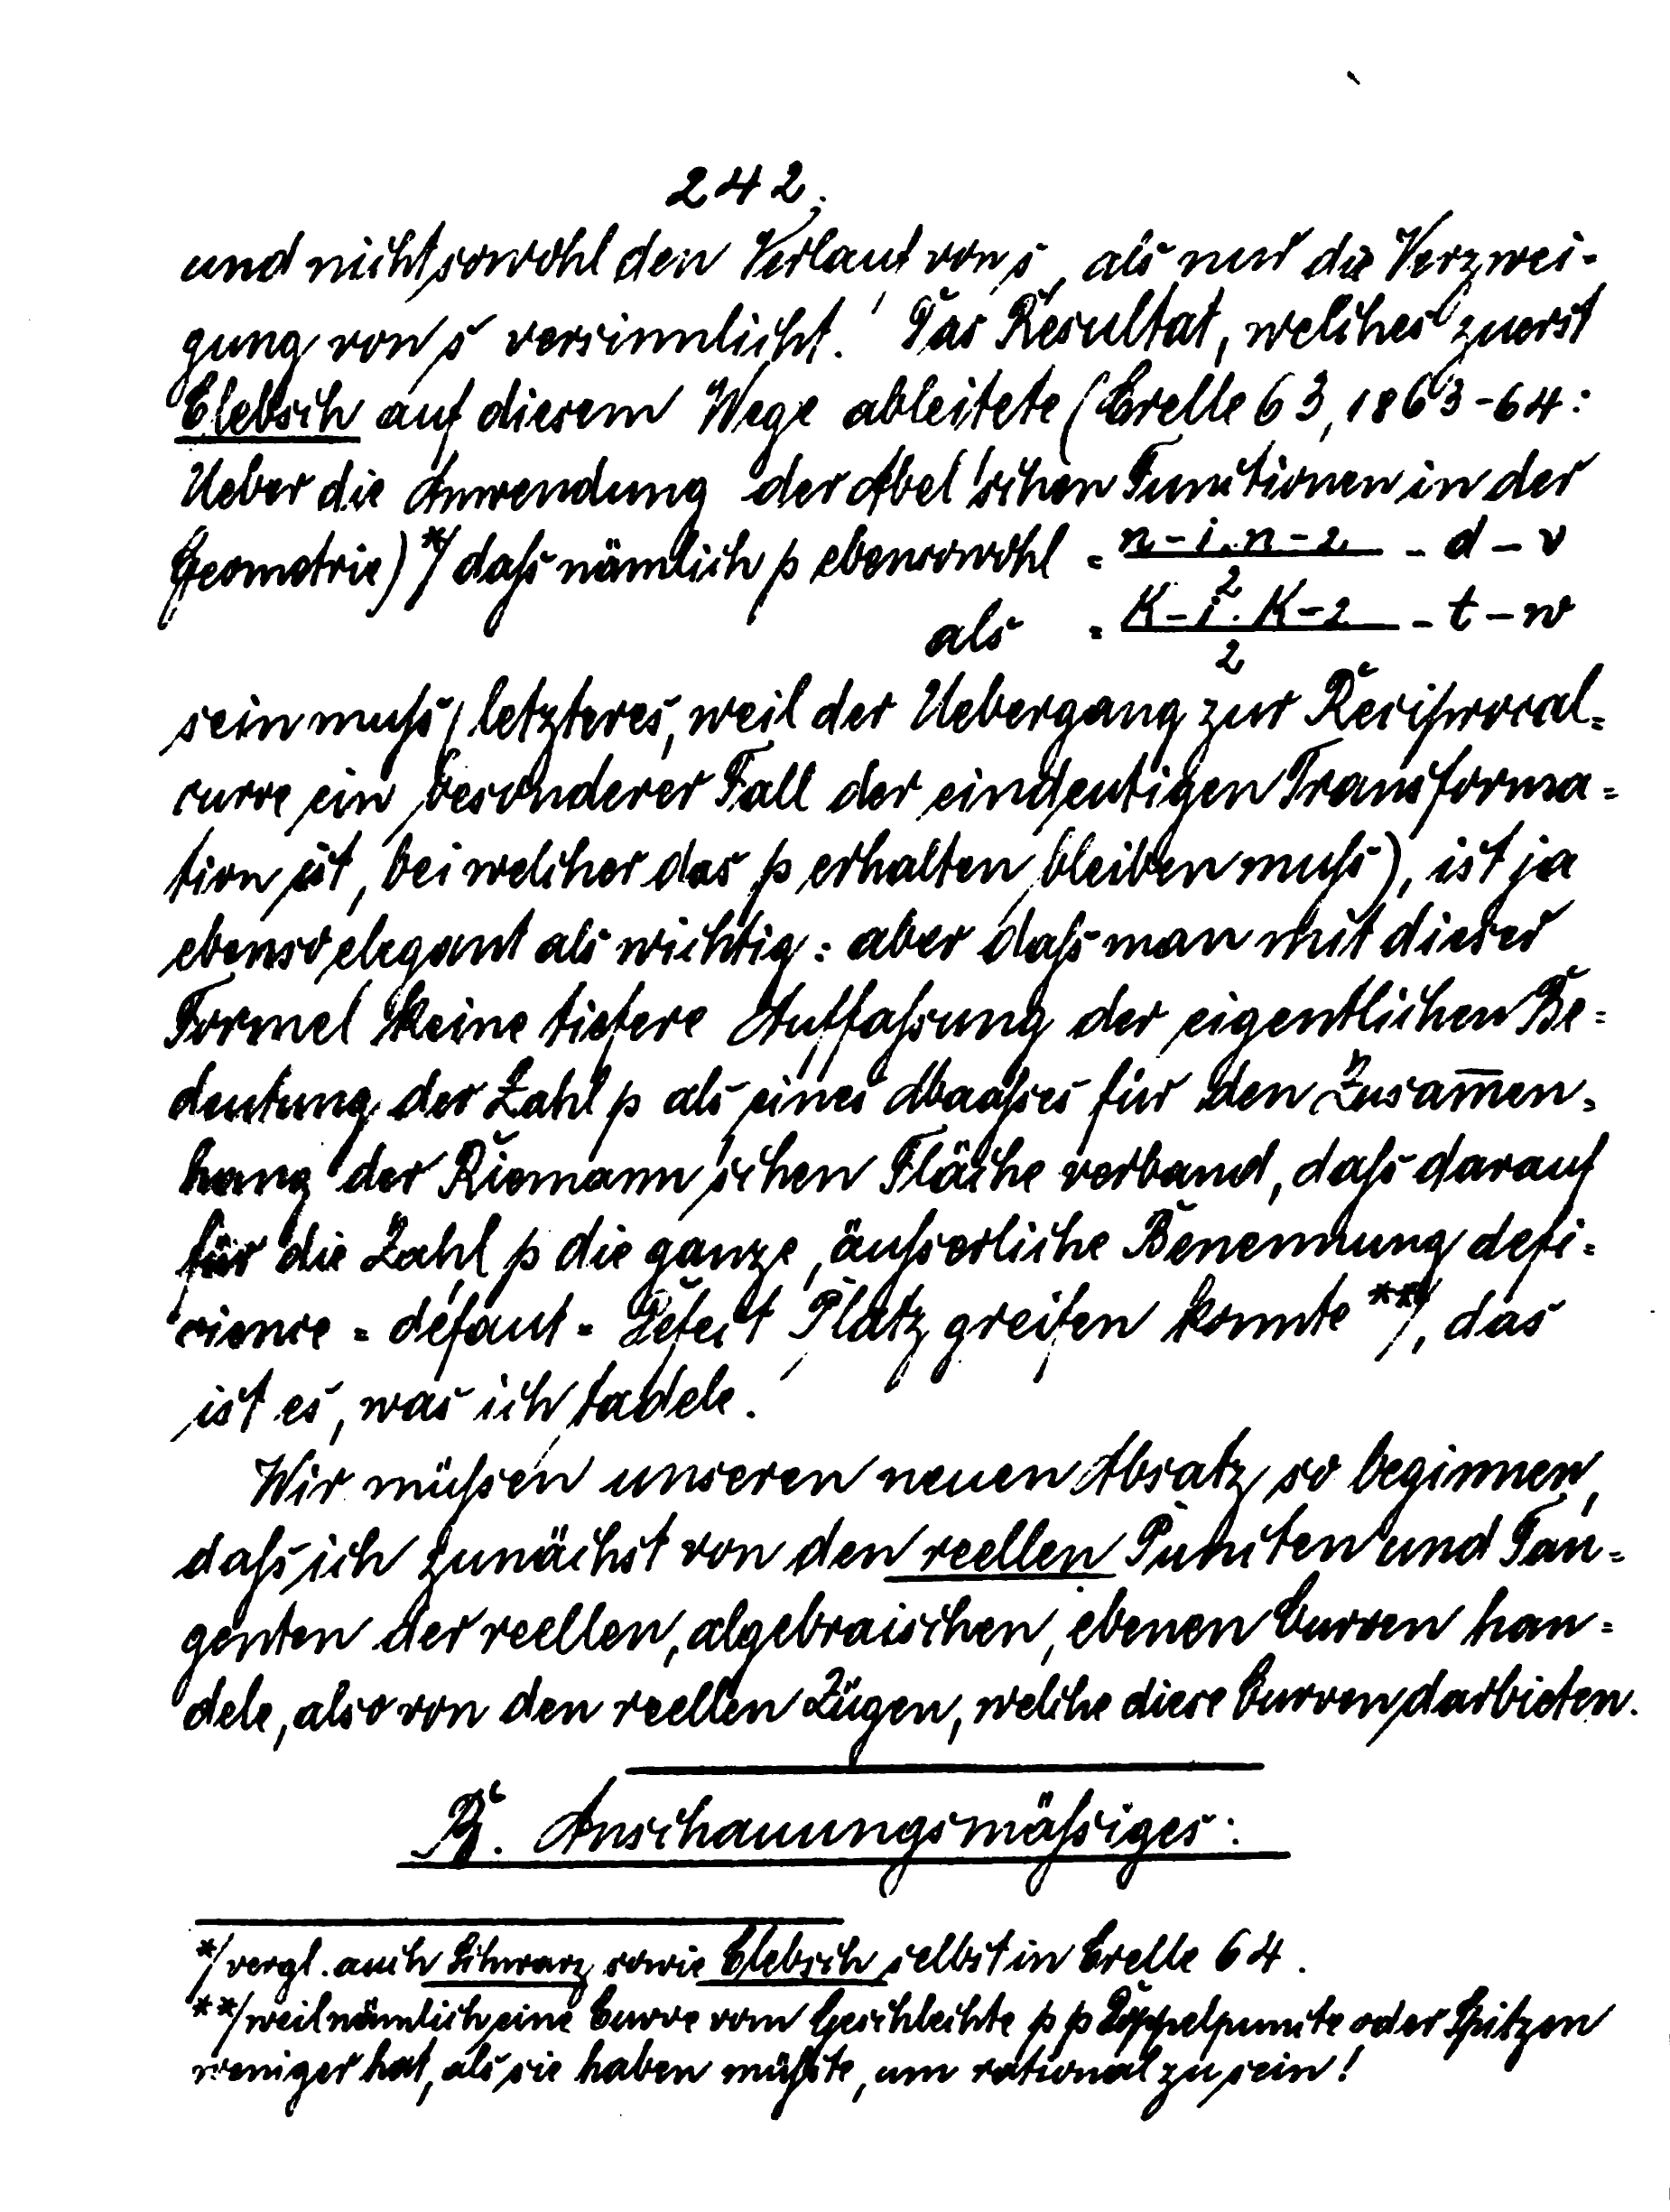 242.
und nicht sowohl den Verlauf von s, als nur die Verzwei-
gung von s versinnlicht. Das Resultat, welches zuerst
Clebsch auf diesem Wege ableitete (Crelle 63, 1863-64:
Ueber die Anwendung der Abel'schen Functionen in der
Geometrie)*) daß nämlich p ebensowohl = n-1.n-2/2 - d - v
als = K-1.K-2/2 - t - w
sein muß (letzteres, weil der Uebergang zur Reciprocal=
curve ein besonderer Fall der eindeutigen Transforma=
tion ist, bei welcher das p erhalten bleiben muß), ist ja
ebenso elegant als wichtig: aber daß man mit dieser
Formel keine tiefere Auffaßung der eigentlichen Be=
deutung der Zahl p als eines Maaßes für den Zusam̅en=
hang der Riemann'schen Fläche verband, daß darauf
für die Zahl p die ganze, äußerliche Benennung defi=
cience = défaut = Defect Platz greifen konnte **), das
ist es, was ich tadele.
Wir müßen unseren neuen Absatz so beginnen,
daß ich zunächst von den reellen Puncten und Tan=
genten der reellen, algebraischen, ebenen Curven han=
dele, also von den reellen Zügen, welche diese Curven darbieten.
B. Anschauungsmäßiges:
*) vergl. auch Schwarz sowie Clebsch selbst in Crelle 64.
**) weil nämlich eine Curve vom Geschlechte p p Doppelpuncte oder Spitzen
weniger hat, als sie haben müßte, um rational zu sein!